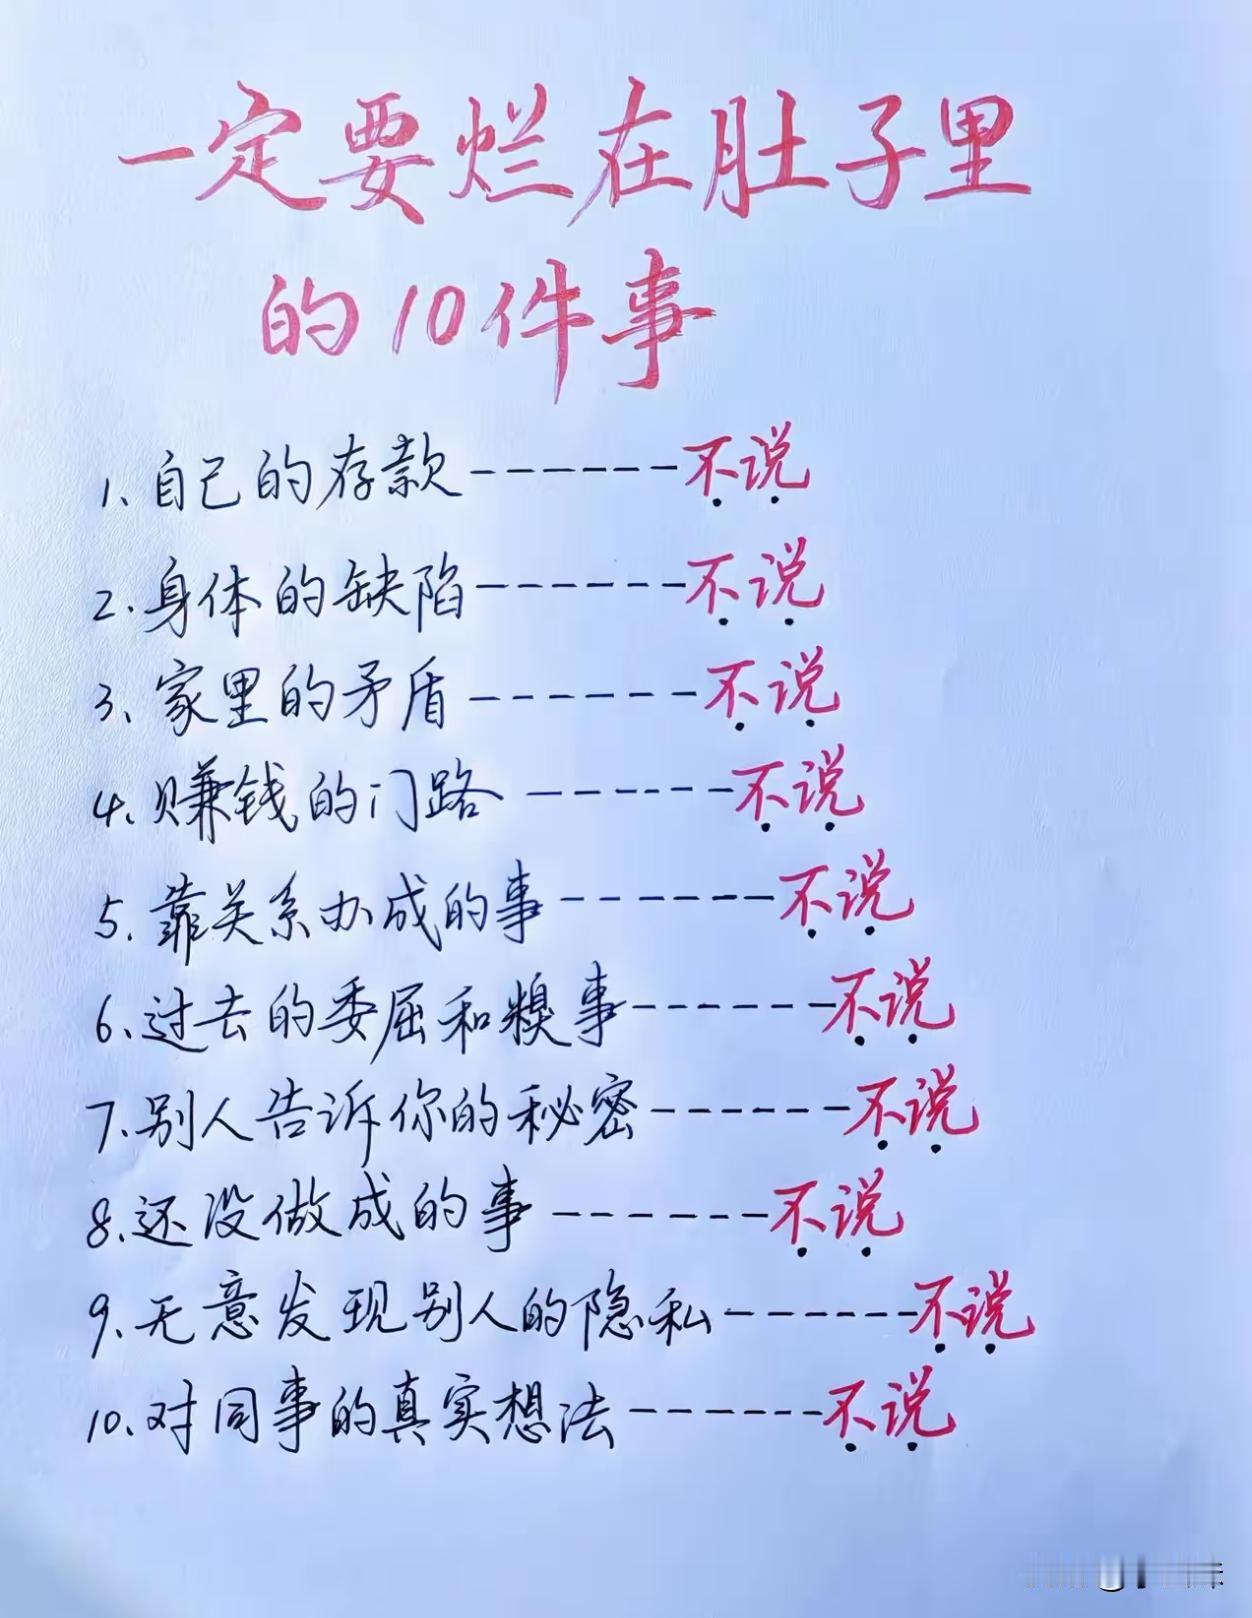 一定要烂在肚子里
的10件事
1、自己的存款------不说
2.身体的缺陷------不说
3、家里的矛盾------不说
4.赚钱的门路------不说
5.靠关系办成的事------不说
6.过去的委屈和糗事------不说
7.别人告诉你的秘密------不说
8.还没做成的事------不说
9.无意发现别人的隐私------不说
10.对同事的真实想法------不说